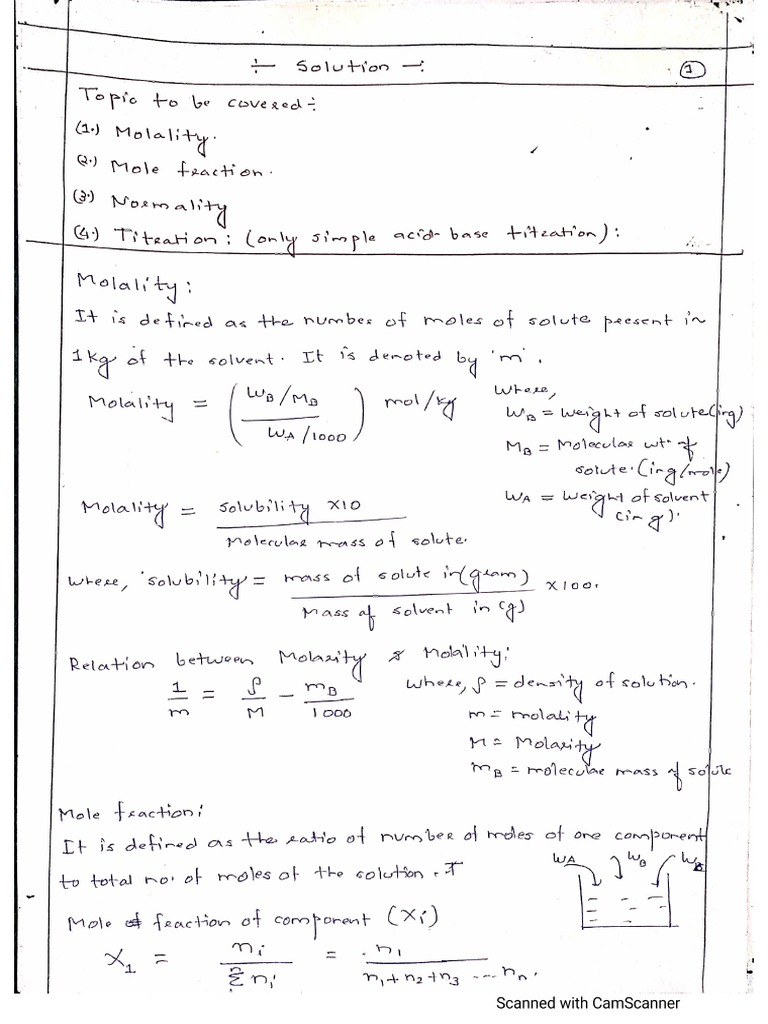 ÷ Solution -: 
1
Topic to be covered ÷
(1.) Molality.
(2.) Mole fraction.
(3.) Normality
(4.) Titration: (only simple acid-base titration):
Molality:
It is defined as the number of moles of solute present in
1kg of the solvent. It is denoted by 'm'.
Molality = ( (W_B/M_B) / (W_A/1000) ) mol/kg
Where,
W_B = Weight of solute (in g)
M_B = Molecular wt. of
solute. (in g/mole)
W_A = Weight of solvent
(in g).
Molality = solubility ×10 / Molecular mass of solute.
Where, 'solubility = mass of solute in (gram) / Mass of solvent in (g) ×100.
Relation between Molarity & Molality:
1/m = ρ/M − m_B/1000
Where, ρ = density of solution.
m = molality
M = Molarity
m_B = molecular mass of solute
Mole fraction:
It is defined as the ratio of number of moles of one component
to total no. of moles of the solution.
W_A W_B W_B
Mole fraction of component (X_i)
X_1 = n_i / Σ n_i = n_1 / n_1+n_2+n_3 .... n_n.
Scanned with CamScanner